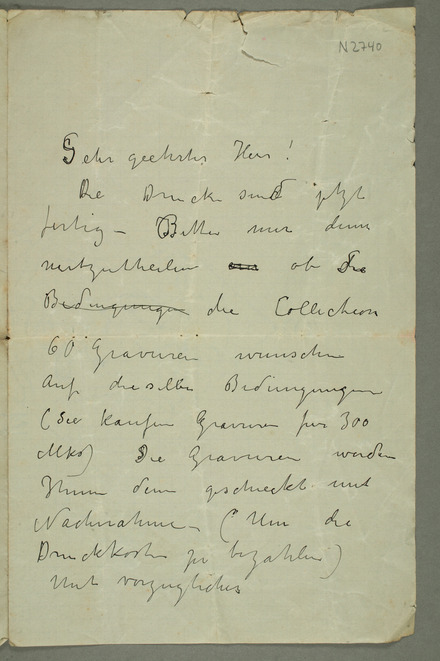 N2740
Sehr geehrter Herr!
Die Drucke sind jetzt
fertig – Bitte mir dann
mitzutheilen ob die
Bedingungen die Collection
60 Gravuren wunschen
auf dieselben Bedingungen
(Sie kaufen Gravuren fur 300
Mks) Die Gravuren werden
Ihnen dann geschickt mit
Nachnahme – (Um die
Druckkosten zu bezahlen)
Mit vorzuglicher